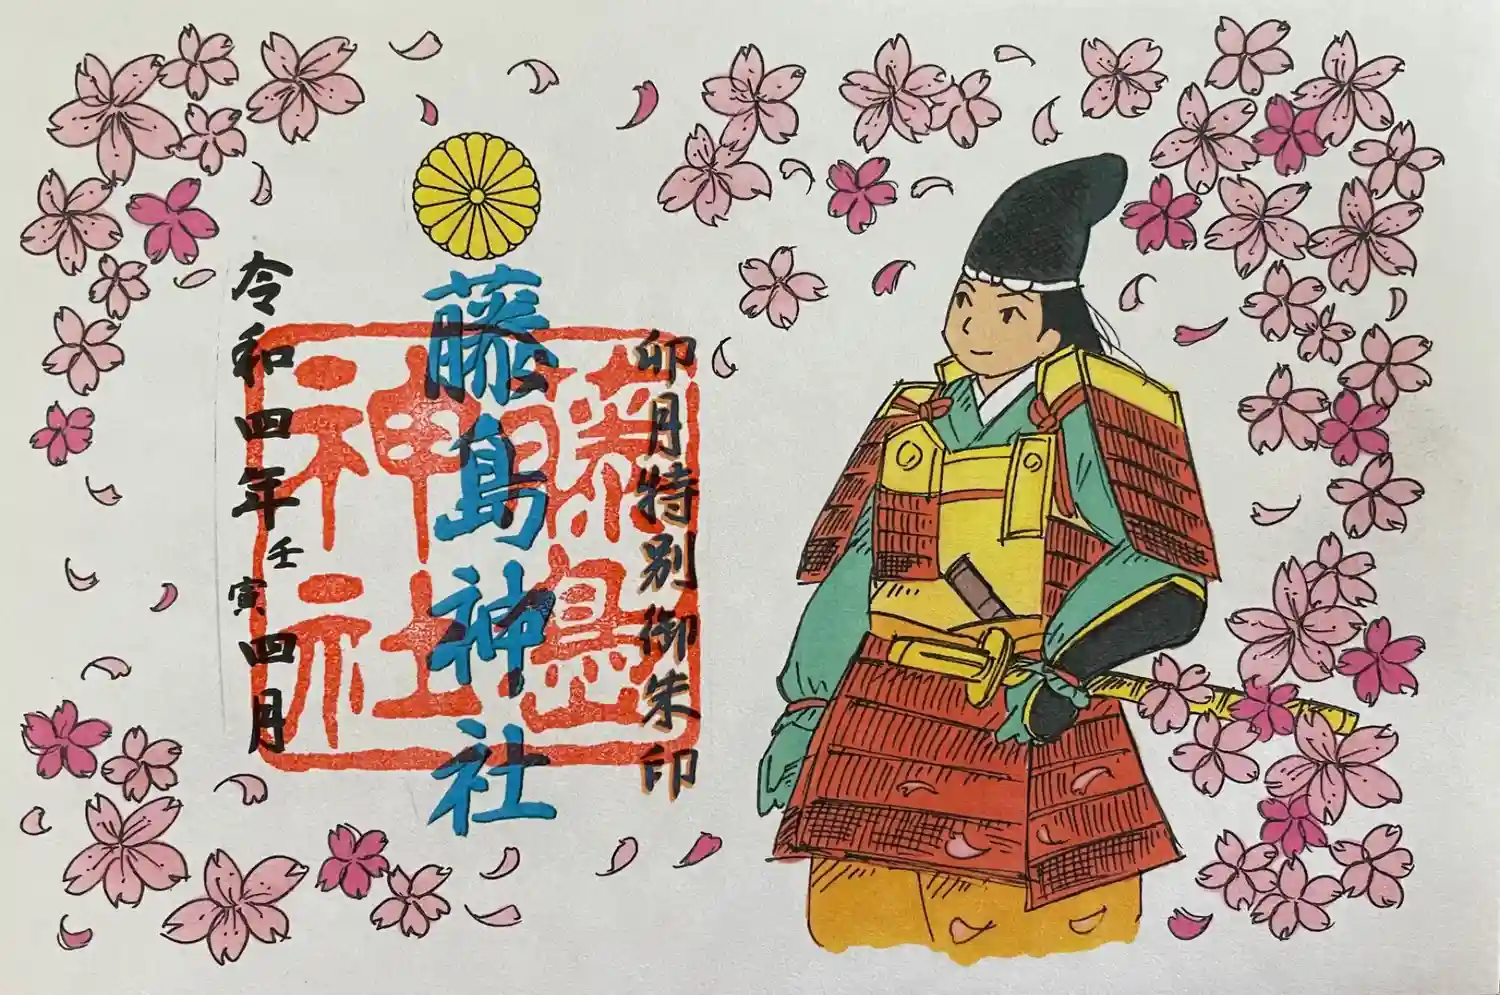 卯月特別御朱印
藤島神社
藤島
神社
令和四年壬寅四月